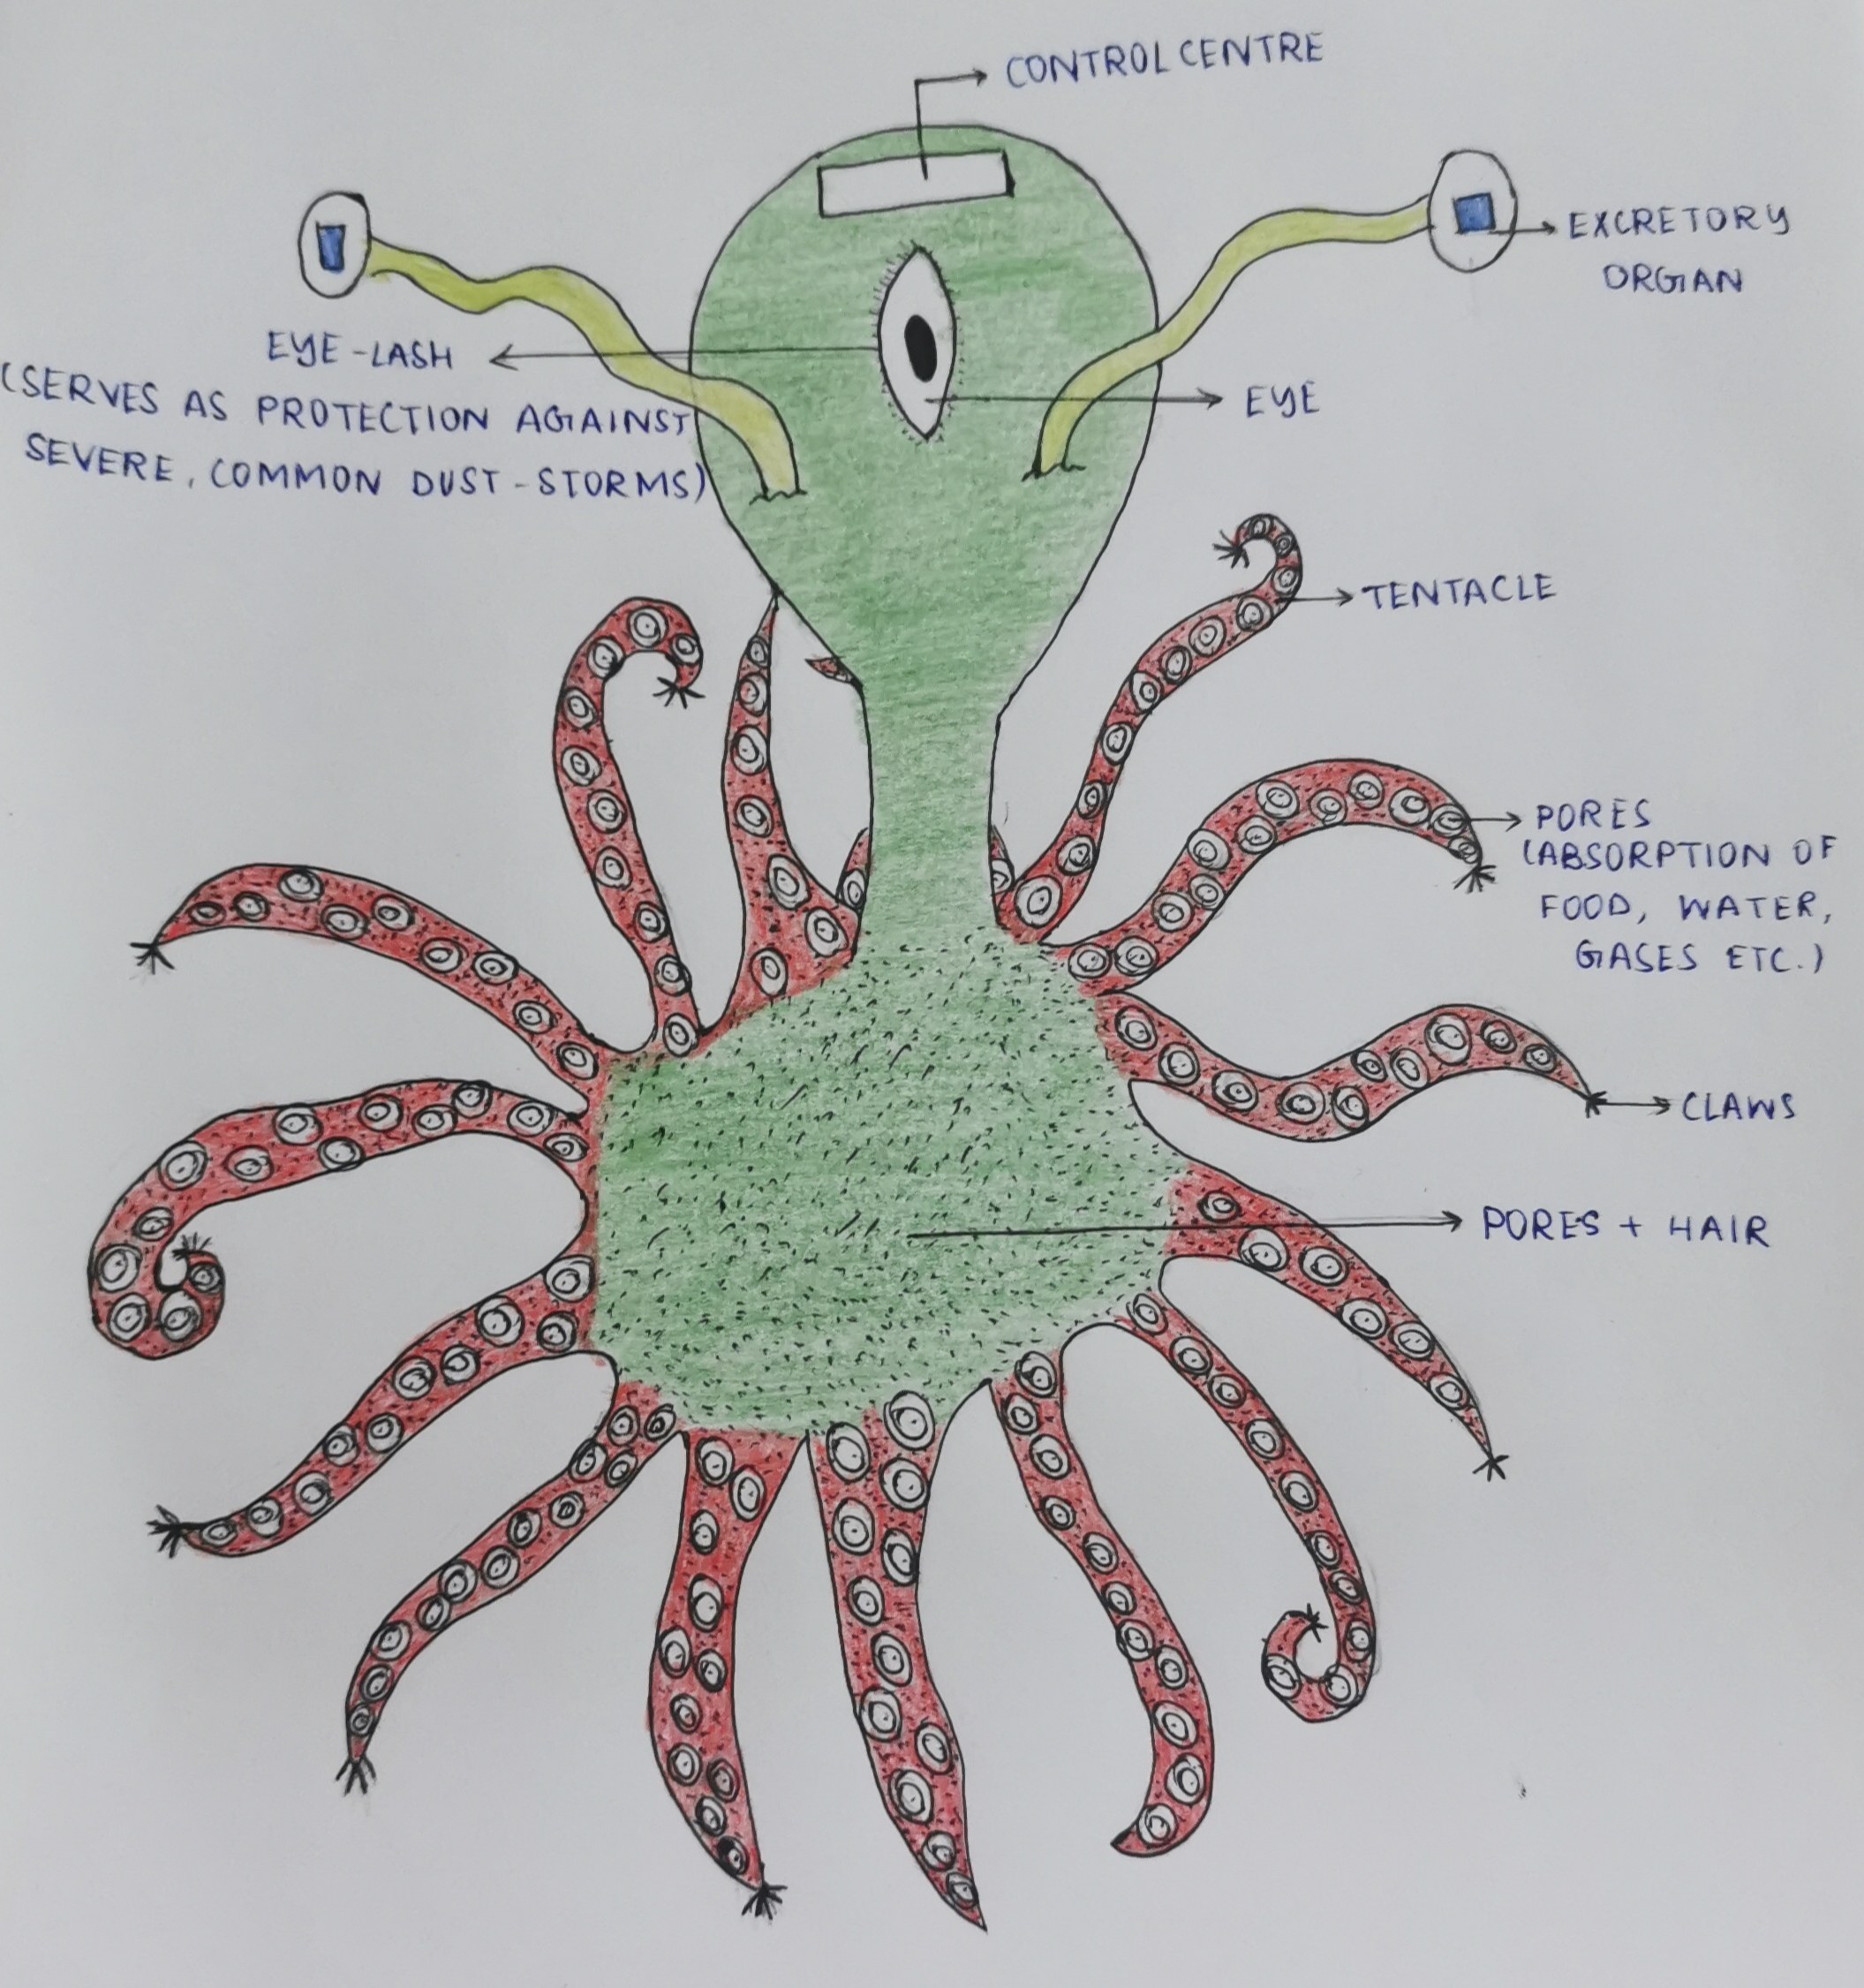 CONTROL CENTRE
EXCRETORY
ORGAN
EYE-LASH
(SERVES AS PROTECTION AGAINST
SEVERE, COMMON DUST-STORMS)
EYE
TENTACLE
PORES
(ABSORPTION OF
FOOD, WATER,
GASES ETC.)
CLAWS
PORES + HAIR